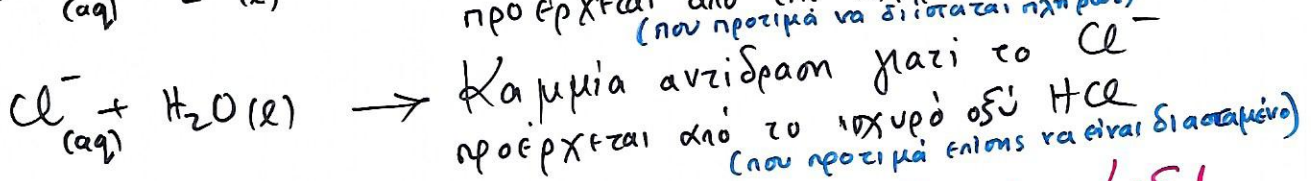 (aq) προέρχεται από
(που προτιμά να διίσταται πλήρως)
Cl⁻(aq) + H₂O(l) → Καμμία αντίδραση γιατί το Cl⁻
προέρχεται από το ισχυρό οξύ HCl
(που προτιμά επίσης να είναι διασταμένο)